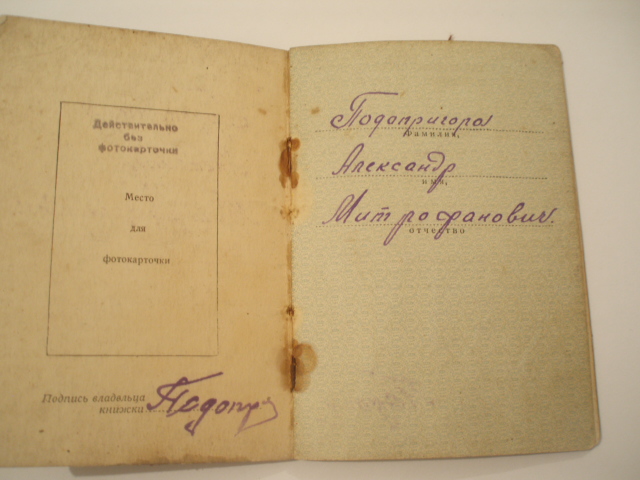 Действительно
без
фотокарточки
Место
для
фотокарточки
Подпись владельца
книжки Подопр
Подопригора
фамилия,
Александр
имя,
Митрофанович
отчество